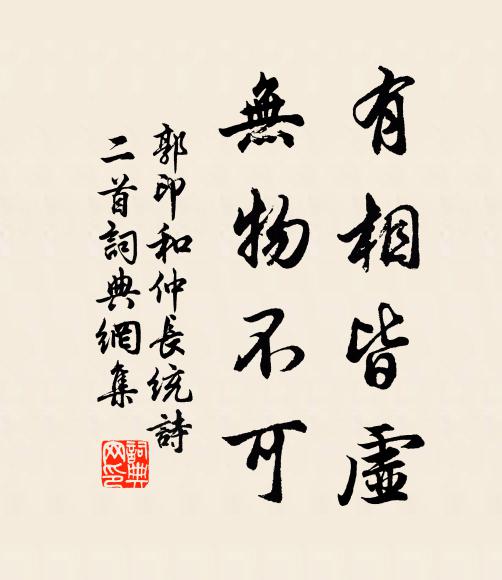 有相皆虛
無物不可
郭印和仲長統詩
二首詞典網集
詞典
网印